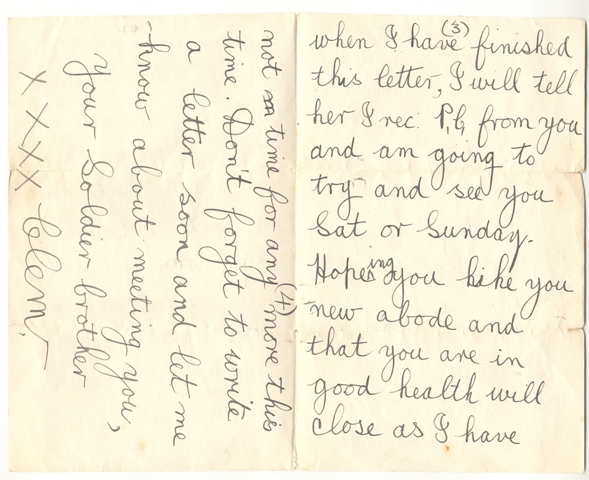 (3)
when I have finished
this letter, I will tell
her I rec. P.C, from you
and am going to
try and see you
Sat or Sunday.
Hopeing you like you
new abode and
that you are in
good health will
close as I have
(4)
not time for any more this
time. Don't forget to write
a letter soon and let me
know about meeting you,
your Soldier brother
x x x x Clem,